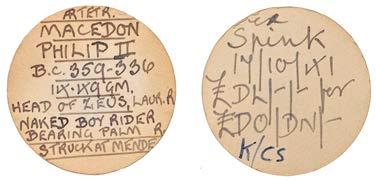 AR TETR.
MACEDON
PHILIP II
B.C. 359-336
IX·XQ GM.
HEAD OF ZEUS, LAUR. R
NAKED BOY RIDER
BEARING PALM R
STRUCK AT MENDE
ex
Spink
/10/XI
£DL/-/- per
£DO/DN/-
K/CS